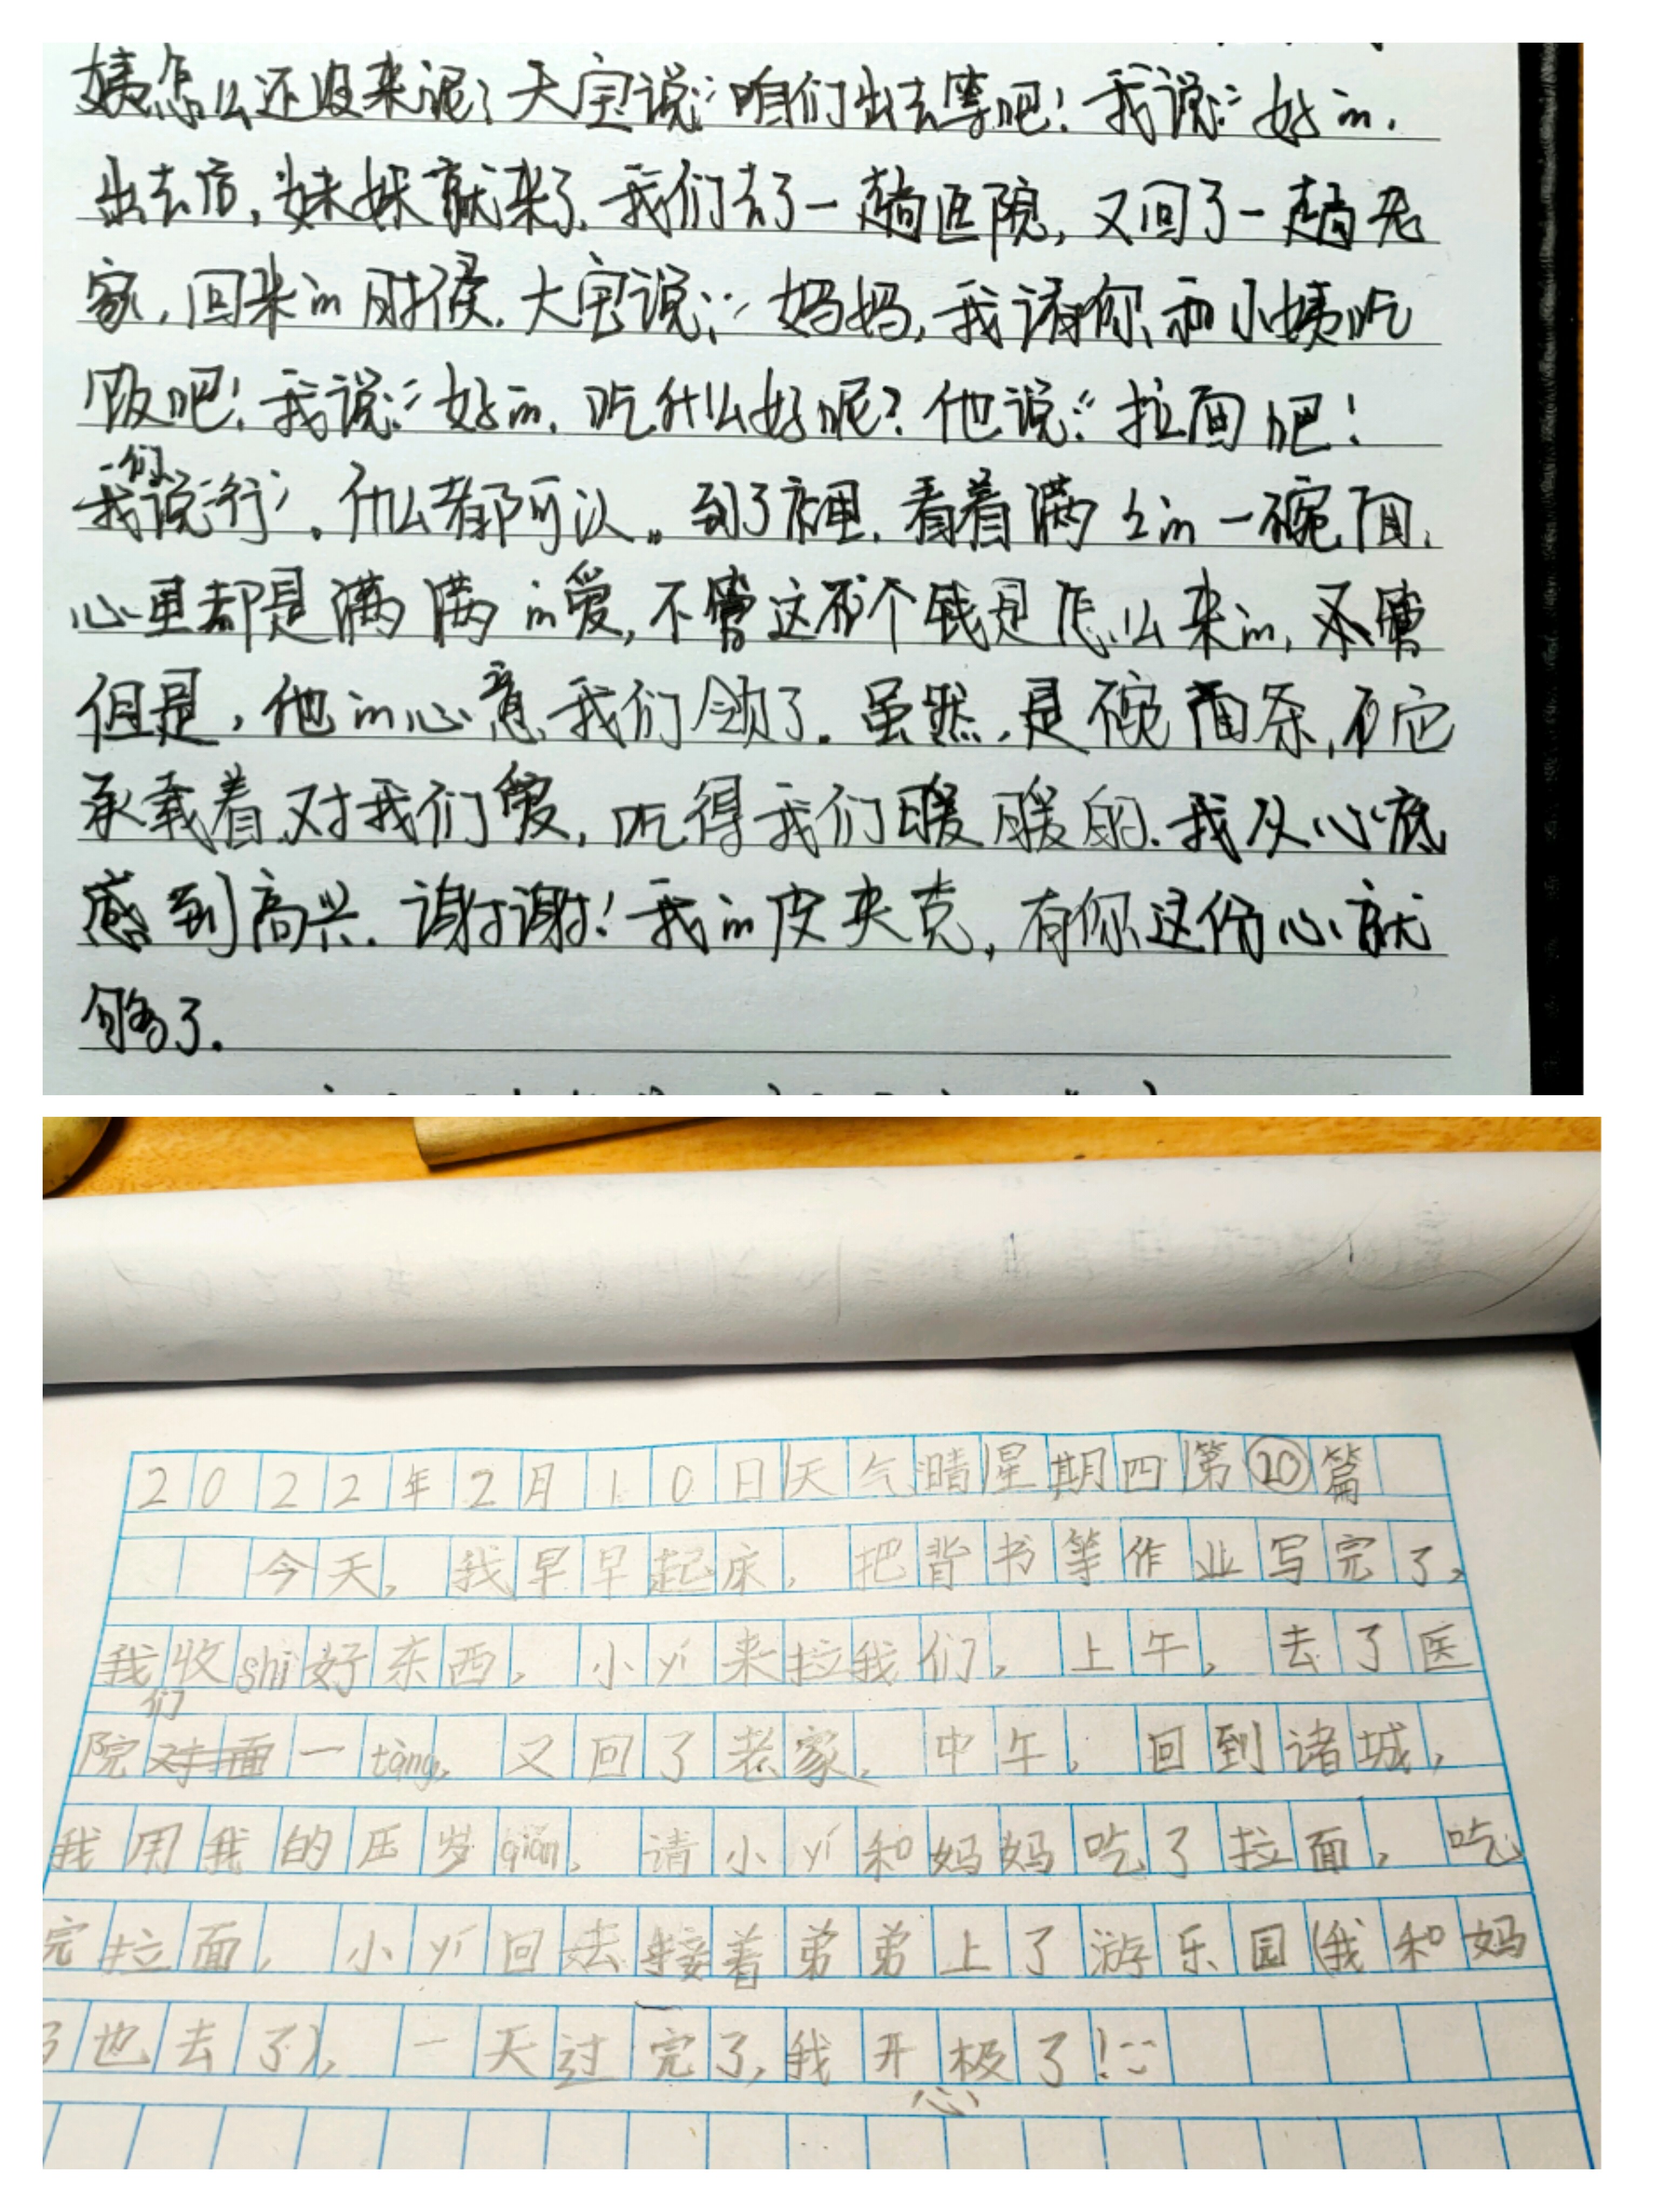 姨怎么还没来呢？天宝说：“咱们出去等吧！我说：“好的.
出去后，妹妹就来了.我们去了一趟医院，又回了一趟老
家.回来的时候.大宝说：“妈妈，我请你和小姨吃
饭吧！我说：“好的.吃什么好呢？他说：“拉面吧！
我们说行”。什么都可以。到了店里.看着满的一碗面.
心里都是满满的爱，不管这个钱是怎么来的，
但是，他的心意我们领了.虽然.是碗面条，它
承载着对我们爱，吃得我们暖暖的.我从心底
感到高兴.谢谢！我的皮夹克，有你这份心就
够了.
2022年2月10日天气晴星期四第⑳篇
今天，我早早起床，把背书等作业写完了，
我们收shi好东西，小yí来拉我们，上午，去了医
院一tàng，又回了老家，中午，回到诸城，
我用我的压岁qián，请小yí和妈妈吃了拉面，吃
完拉面，小yí回去接着弟弟上了游乐园(我和妈
也去了)，一天过完了,我开心极了！